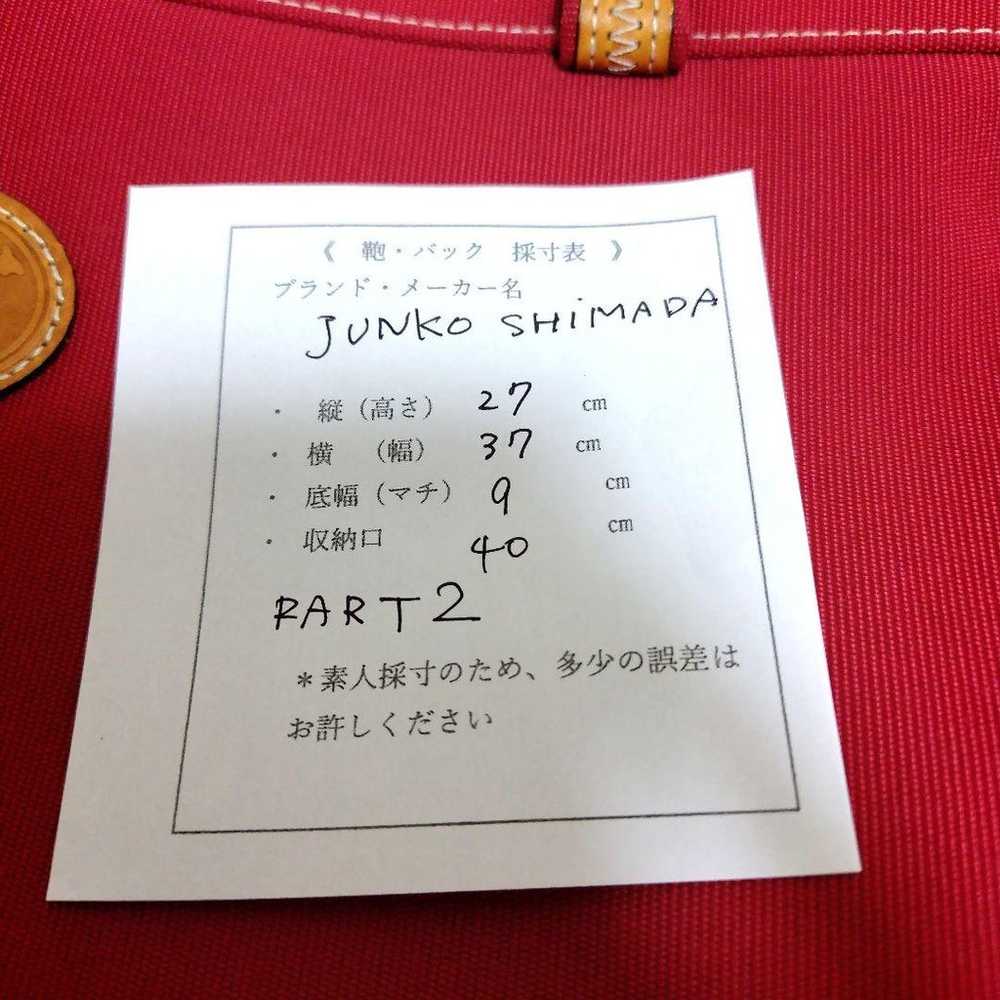 《 鞄・バック 採寸表 》
ブランド・メーカー名
JUNKO SHiMADA
・ 縦（高さ） 27 cm
・ 横 （幅） 37 cm
・ 底幅（マチ） 9 cm
・ 収納口 40 cm
PART2
＊素人採寸のため、多少の誤差は
お許しください